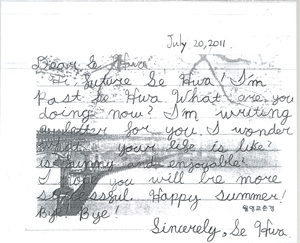 July 20, 2011.
Dear Se Hwa
Hi future Se Hwa! I'm
past Se Hwa. What are you
doing now? I'm writing
a letter for you. I wonder
what your life is like?
is funny and enjoyable!
I hope you will be more
successful. Happy summer!
Bye Bye!
Sincerely, Se Hwa